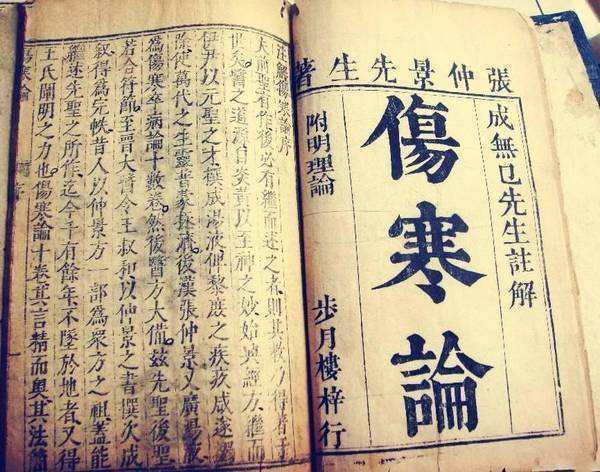 張仲景先生著
成無已先生註解
傷寒論
附明理論
步月樓梓行
注解傷寒論序
夫前聖有作後必有繼而述之者則其教乃得著于
世矣醫之道源自炎黃以至神之妙始興經方繼而
伊尹以元聖之才撰成湯液俾黎庶之疾疢咸遂蠲
除使萬代之生靈普蒙拯濟後漢張仲景又廣湯液
為傷寒卒病論十數卷然後醫方大備茲先聖後聖
若合符節至晉太醫令王叔和以仲景之書撰次成
叙得為完帙昔人以仲景方一部為衆方之祖蓋能
繼述先聖之所作迄今千有餘年不墜於地者又得
王氏闡明之力也傷寒論十卷其言精而奧其法簡
傷寒論 序